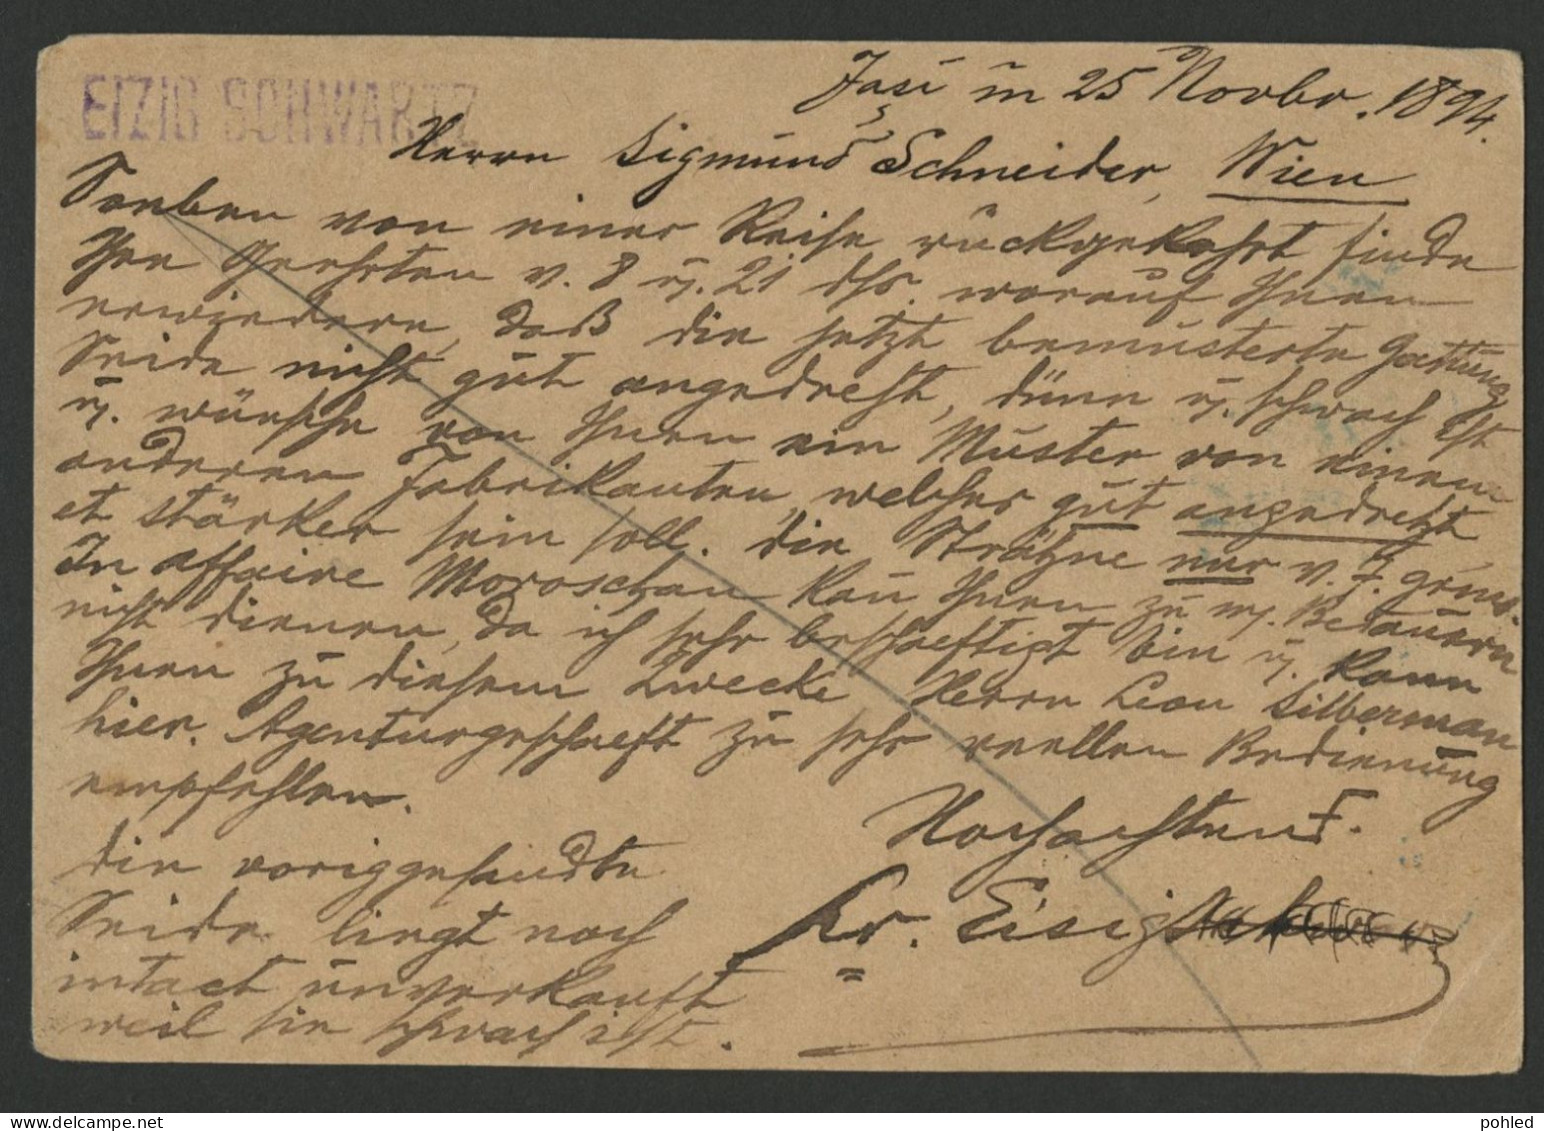 EIZIG SCHWARTZ
Jasi in 25 Novbr. 1894.
Herrn Sigmund Schneider, Wien
Soeben von einer Reise rückgekehrt finde
Ihre Geehrten v. 8 u. 21 dss. worauf Ihnen
erwiedere, daß die jetzt bemusterte Gattung
Seide nicht gut angedreht, dünn u. schwach ist
u. wünsche von Ihnen ein Muster von einem
anderen Fabrikanten, welcher gut angedreht,
et stärker sein soll. die Strähne nur v. 7 gms.
In affaire Moroschan kan Ihnen zu m. Bedauern
nicht dienen, da ich sehr beschaeftigt bin u. kann
Ihnen zu diesem Zwecke Herrn Leon Silberman
hier. Agenturgeschaeft zu sehr reellen Bedienung
empfehlen.
Hochachtend.
die voriggesandte
Seide liegt noch
intact unverkauft
weil sie schwach ist.
Eisig
pohled